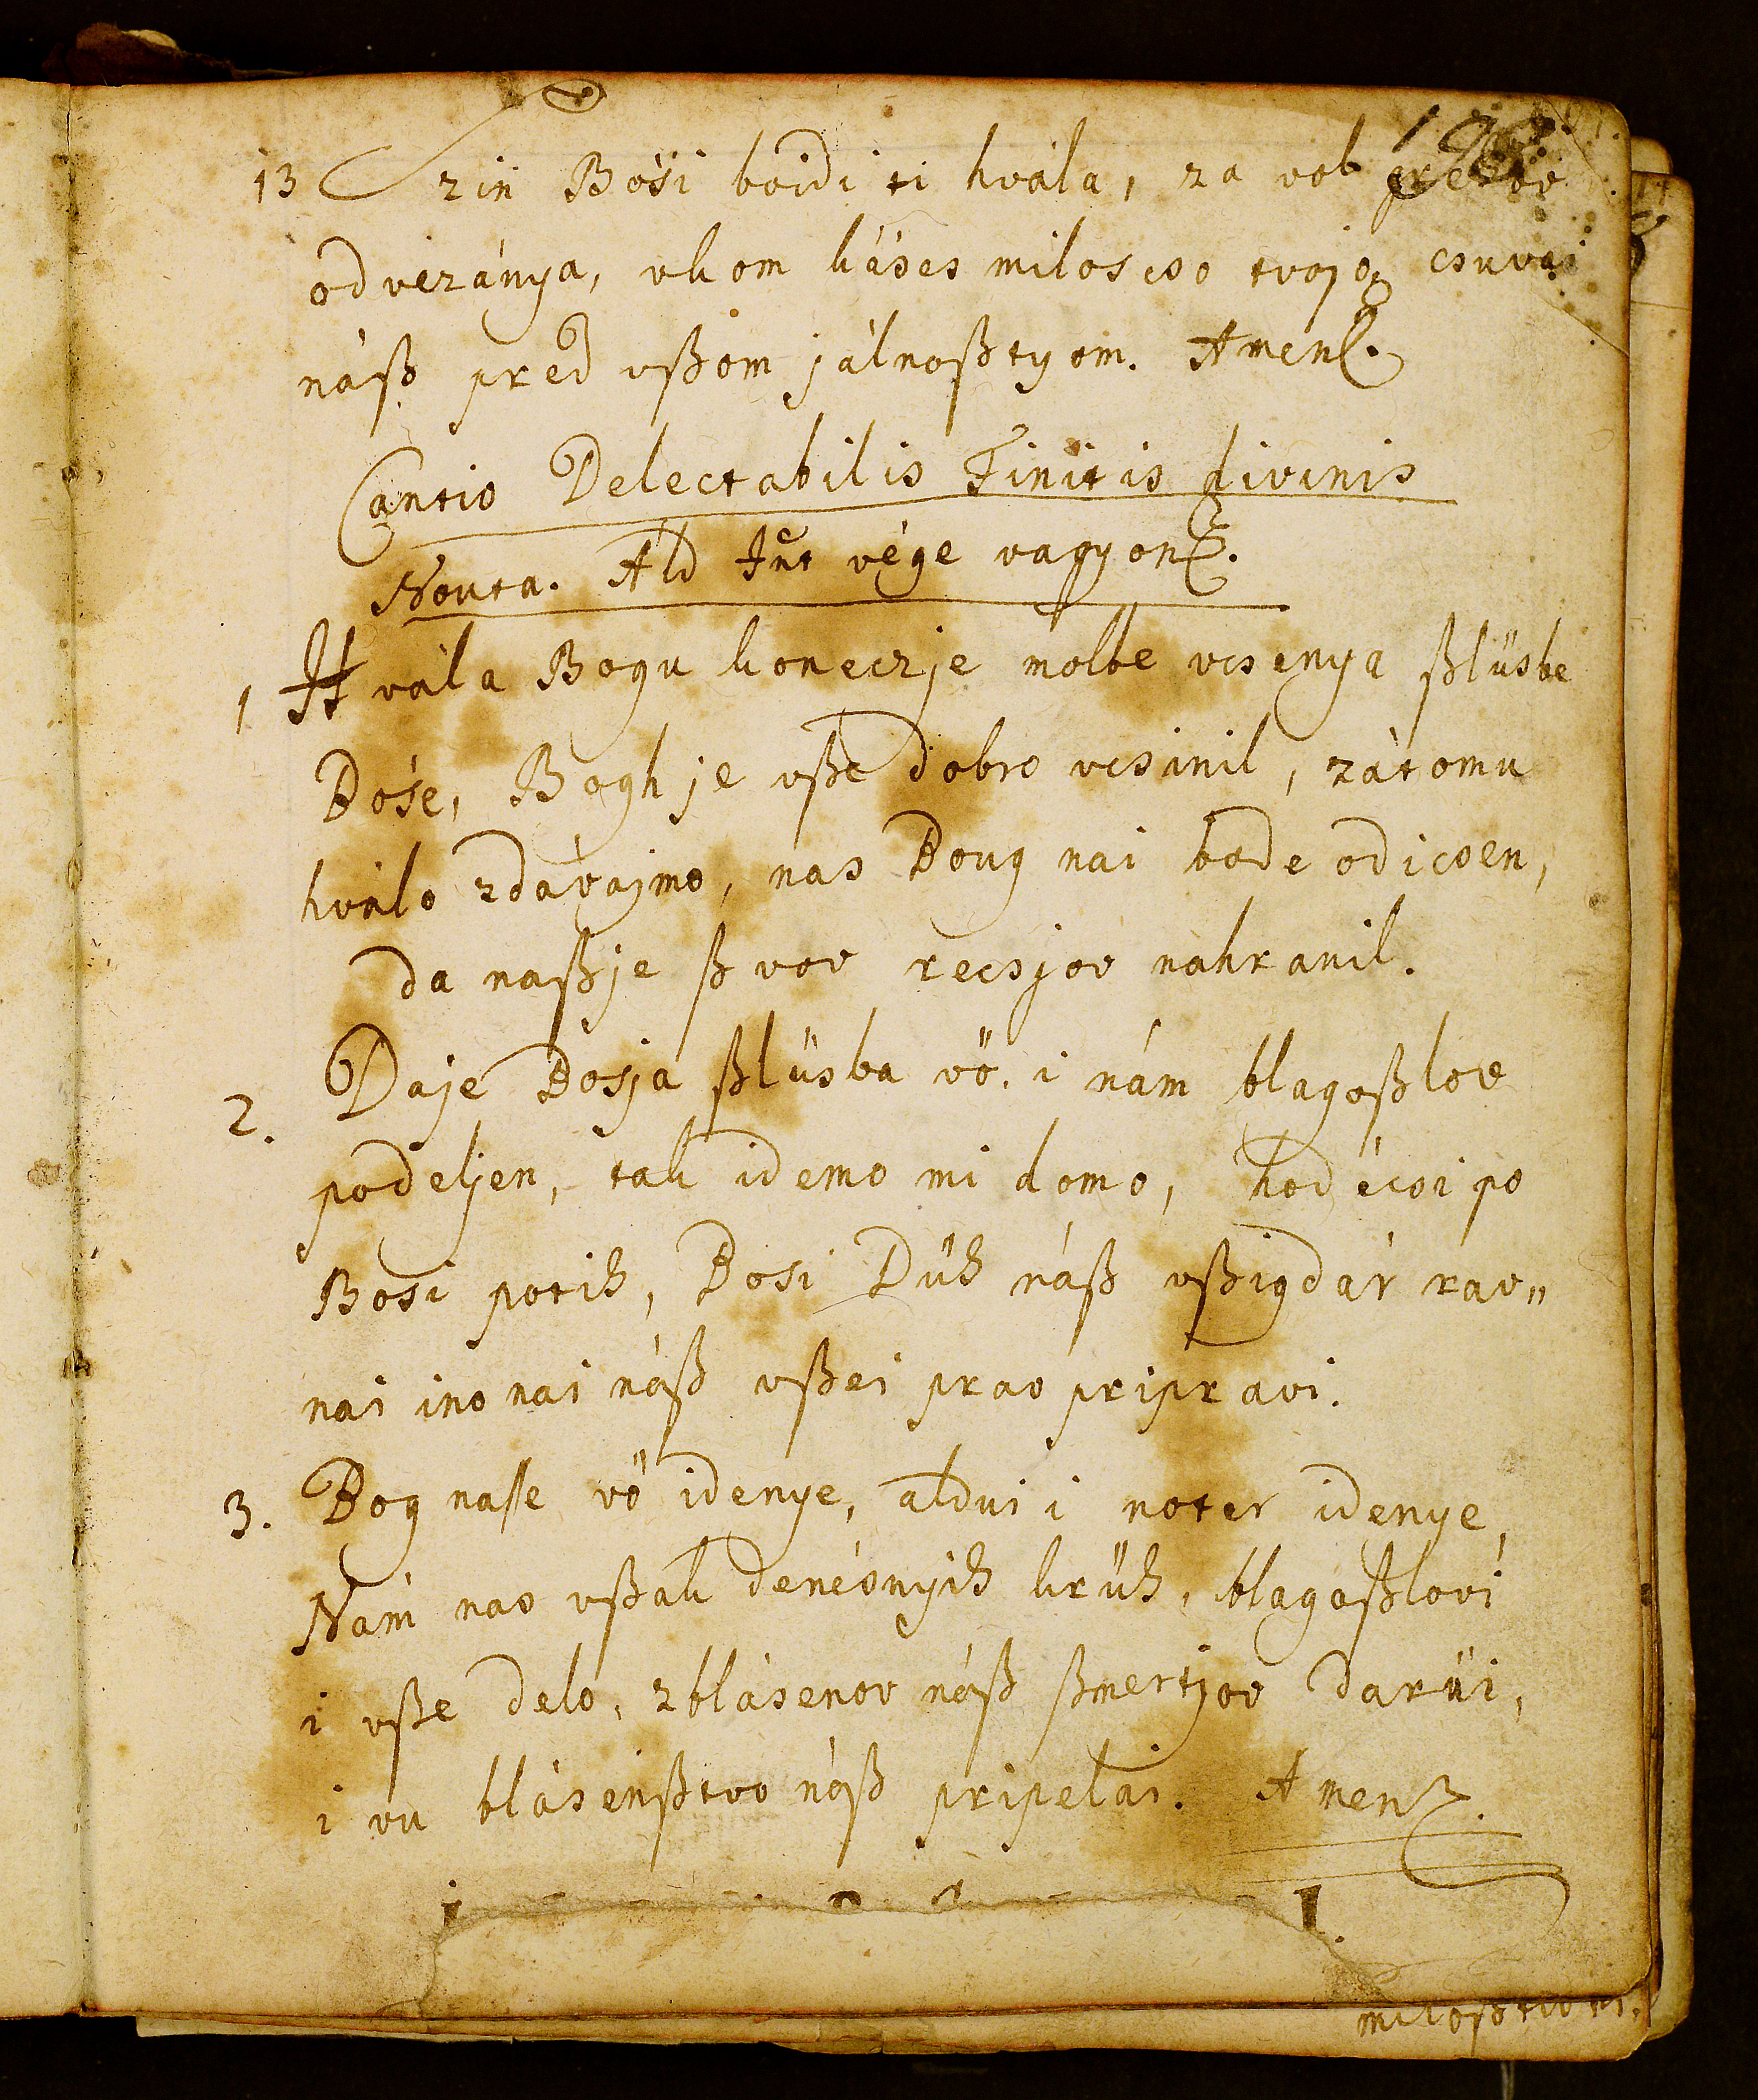 13 Szin Bósi boidi ti hvála, za vol
odvezánya, vkom káses miloscso tvojo, csuvai
náß pred vßom jálnoßtyom. Amen.
Cantio Delectabilis Finitis divinis
Nouta. Ald Iut vége vagyon.
1 Hvála Bogu konecz je molbe vcsenya ßlüsbe
Bóse, Bogh je vße dobro vcsinil, zátomu
hválo zdávajmo, nas Boug nai bode odicsen,
da naßje ßvov recsjov nahranil.
2. Daje Bosja ßlüsba vö, i nám blagoßlov
podeljen, tak idemo mi domo, hodécsi po
Bosi potih, Bosi Düh náß vßigdár rav„
nai ino nai náß vßei prav pripravi.
3. Bog naße vö idenye, áldui i noter idenye,
Nám nas vßak denésnyih krüh, blagoßlovi
i vße delo, zblásenov náß ßmertjov darüi,
i vu blásenßtvo náß pripelai. Amen.
miloßtivni.